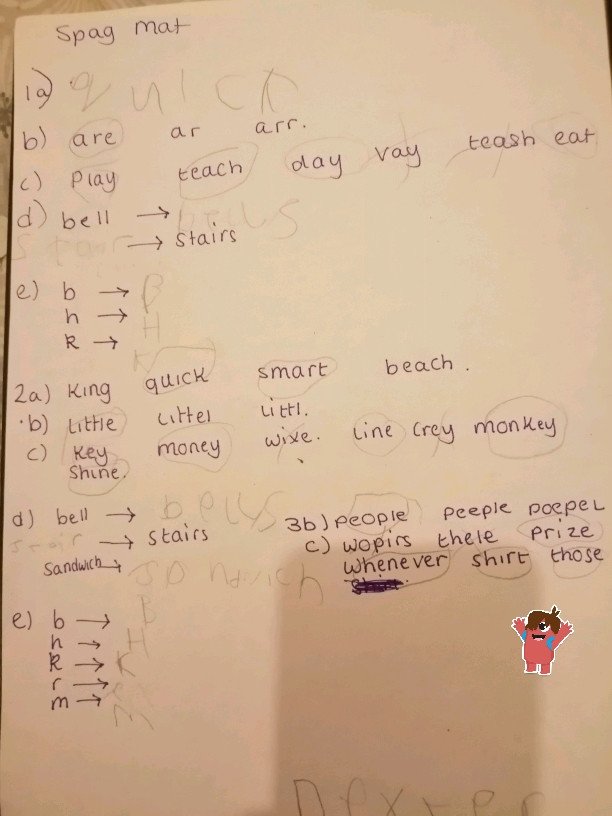 Spag mat
1a) quick
b) are ar arr.
c) Play teach day vay teash eat
d) bell → bells
stair → stairs
e) b → B
h → H
k → K
2a) King quick smart beach.
b) little littel littl.
c) Key money wixe. line crey monkey
Shine.
d) bell → bells
stair → stairs
Sandwich →
e) b → B
h → H
k → K
r →
m → m
3b) people peeple poepel
c) wopirs thele prize
whenever shirt those
Dexter